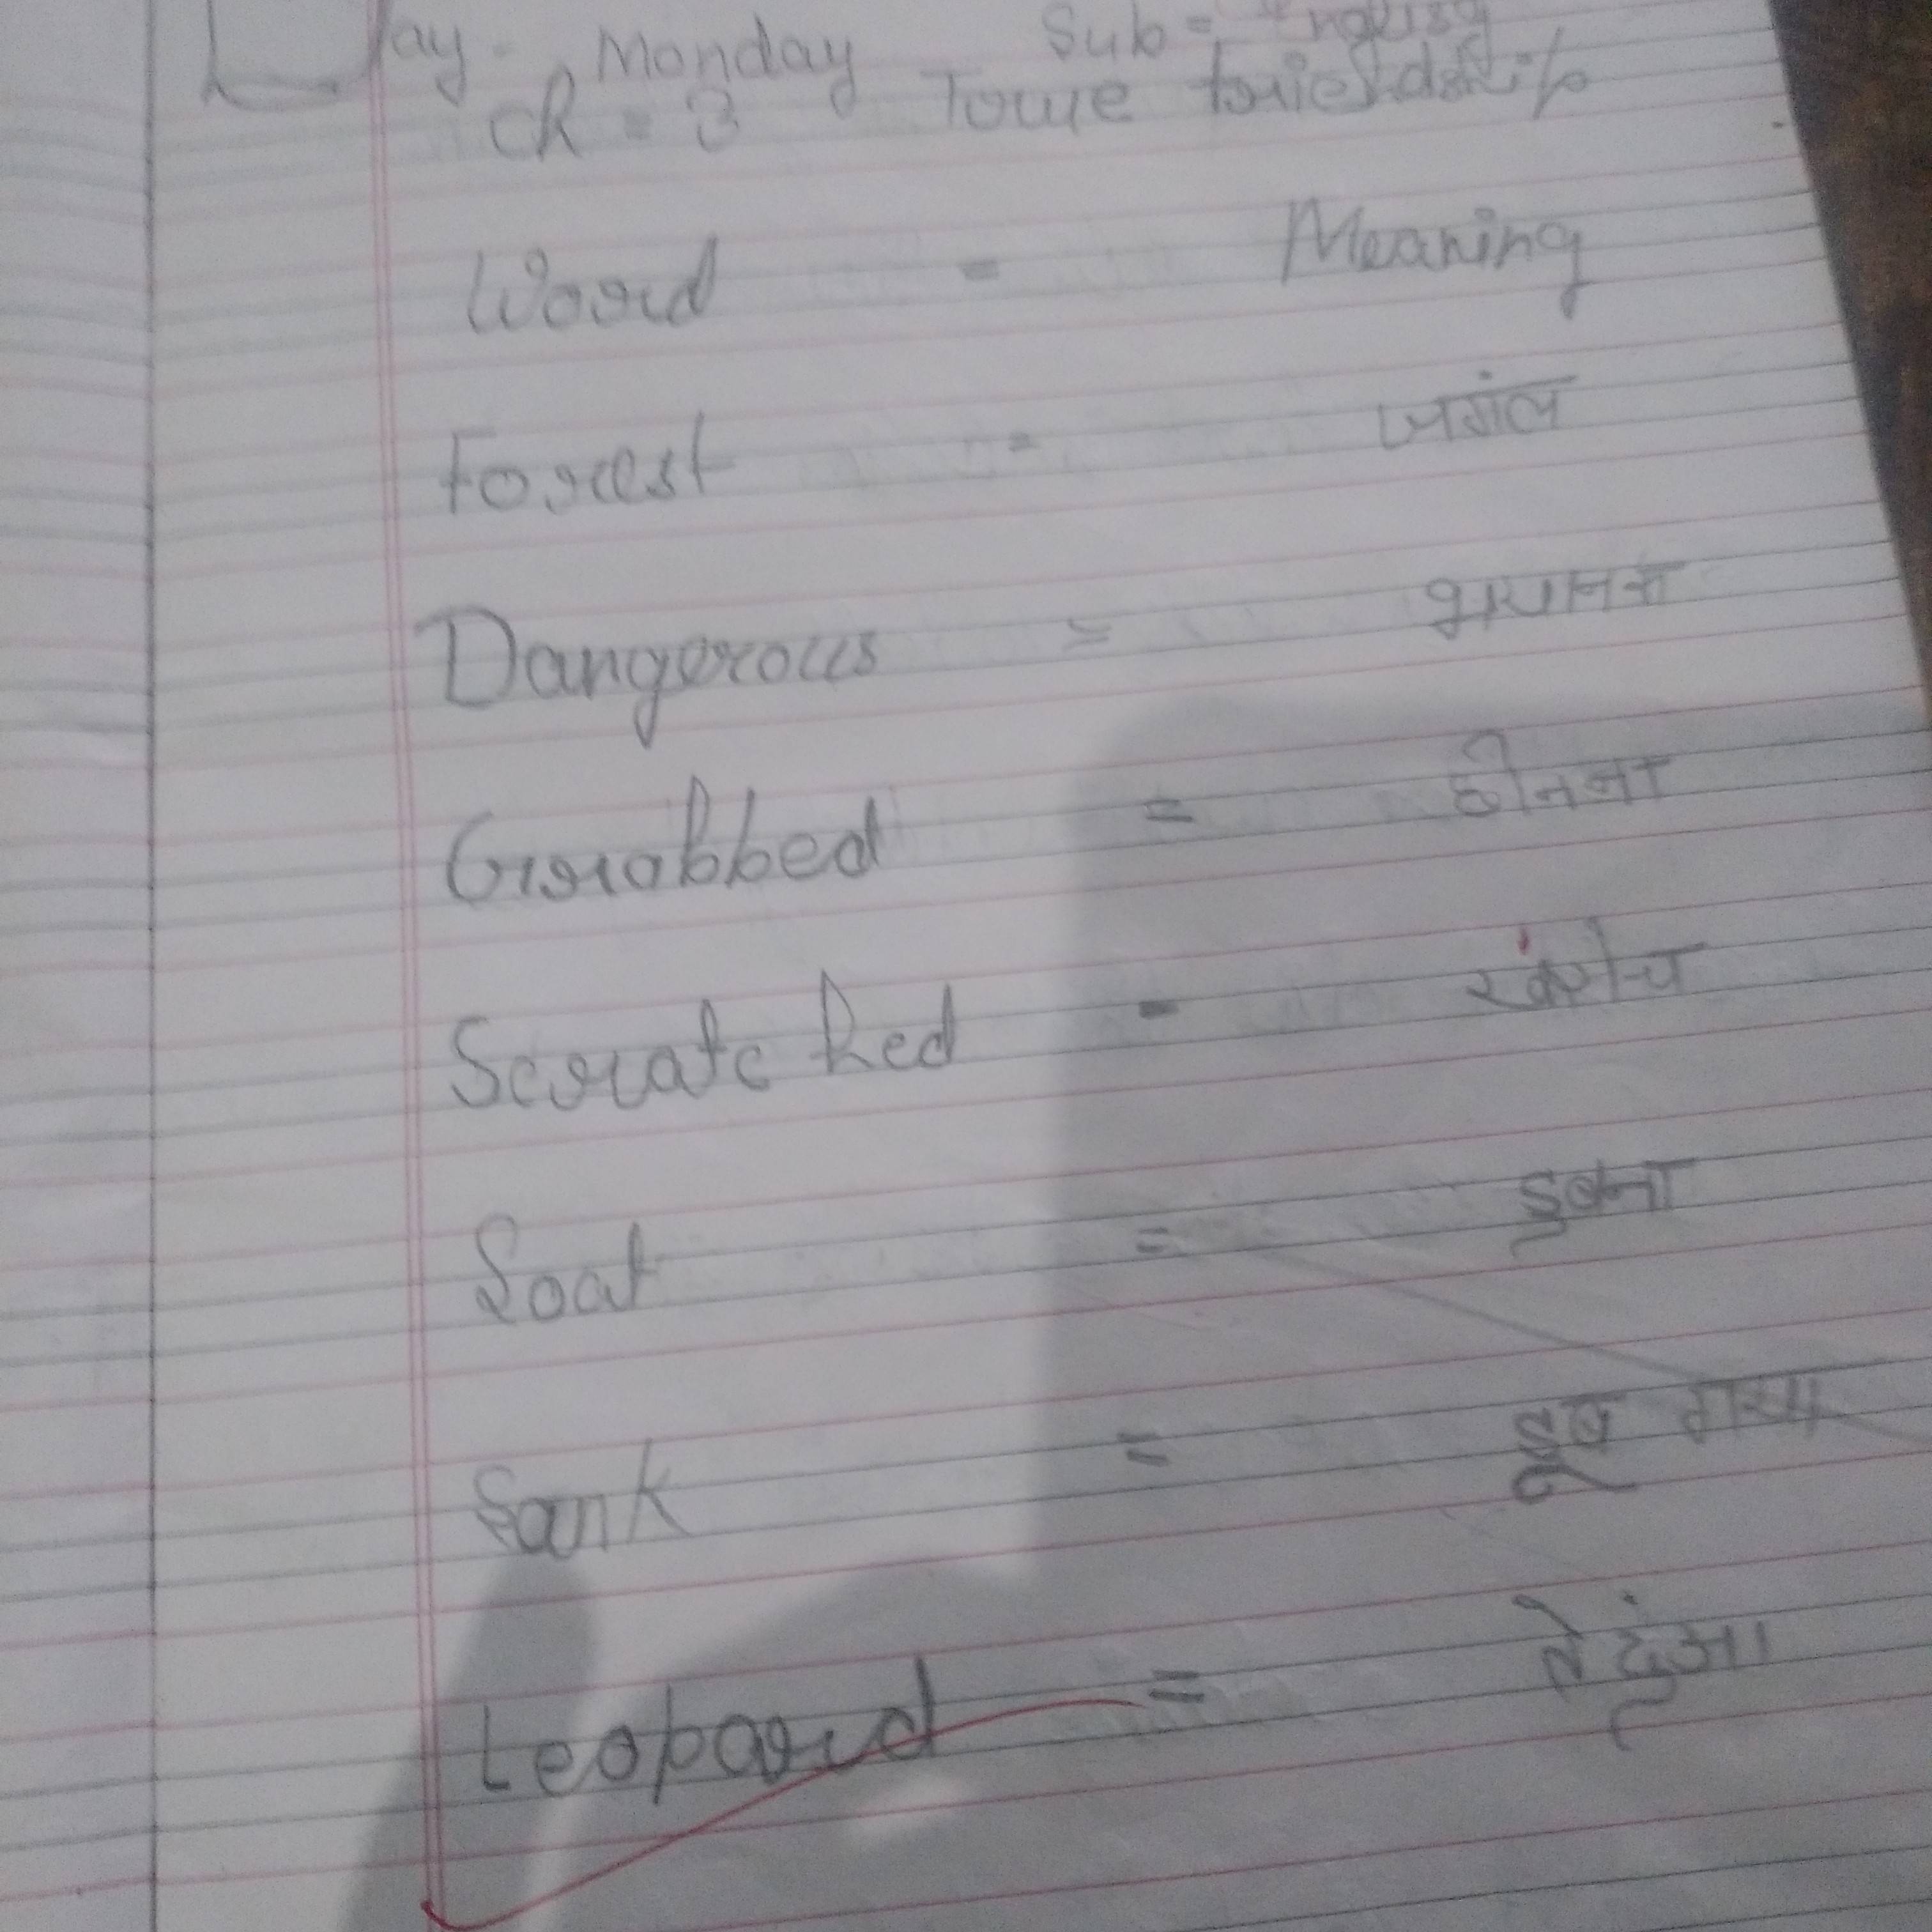 Day - Monday Sub = English
Ch = 3 True friendship
Word - Meaning
Forest = जगंल
Dangerous = भयानक
Grabbed = छीनना
Scratched - खंरोच
Soat = डुबना
Sank = डूब गया
Leopard = तेदुंआ